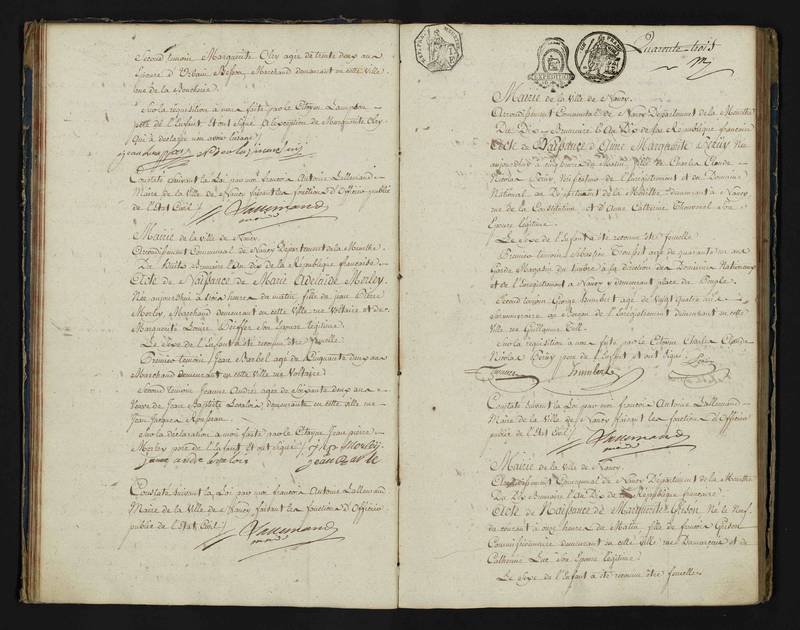 Second temoin Marguerite Olry agée de trente deux ans
Epouse d'Urbain Besson, Marchand demeurant en cette Ville
rue de la Boucherie.
Sur la réquisition à nous faite par le Citoyen
père de l'Enfant et ont signé à l'exception de Marguerite Olry
qui a déclaré non avoir l'usage /
Constaté suivant la Loi par moi françois Antoine Lallemand
Maire de la Ville de Nancy faisant les fonctions d'Officier public
de l'Etat Civil /
Lallemand
Mairie de la ville de Nancy.
Arrondissement Communal de Nancy Département de la Meurthe
Du huit Brumaire l'an dix de la République française.
Acte de Naissance de Marie Adelaïde Morley.
Née aujourd'hui à six heures du matin, fille de jean Pierre
Morley, Marchand demeurant en cette Ville rue Voltaire et de
Marguerite Louise Pfeiffer son Epouse légitime.
Le sexe de l'Enfant a été reconnu être femelle.
Premier temoin, Jean agé de Cinquante deux ans
Marchand demeurant en cette Ville rue Voltaire.
Second temoin Jeanne André agée de soixante deux ans
Veuve de Jean Baptiste demeurante en cette ville rue
Jean Jacques Rousseau.
Sur la déclaration à moi faite par le Citoyen Jean pierre
Morley père de l'Enfant et ont signé / Morley
Constaté suivant la Loi par moi françois Antoine Lallemand
Maire de la Ville de Nancy faisant les fonctions d'Officier
public de l'Etat Civil /
Lallemand
Quarante-trois
Mairie de la Ville de Nancy.
Arrondissement Communal de Nancy Département de la Meurthe
Du Dix Brumaire l'An Dix de la République française
Acte de Naissance d'Anne Marguerite Née
aujourd'hui à heures du Matin, fille de Charles Claude
Nicolas de l'Enregistrement et du Domaine
National au Département de la Meurthe, demeurant à Nancy
rue de la Constitution et d'Anne Catherine Thouvenel son
Epouse légitime.
Le sexe de l'Enfant a été reconnu être femelle.
Premier temoin Sébastien agé de quarante un ans
Garde Magasin du timbre à la direction des Domaines Nationaux
et de l'Enregistrement à Nancy y demeurant place du Peuple.
Second temoin George Humbert agé de Vingt quatre ans
Surnuméraire au Bureau de l'Enregistrement demeurant en cette
Ville rue Guillaume Tell.
Sur la réquisition à nous faite par le Citoyen Charles Claude
Nicolas père de l'Enfant et ont signé /
humbert
Constaté suivant la Loi par moi françois Antoine Lallemand
Maire de la Ville de Nancy faisant les fonctions d'Officier
public de l'Etat Civil /
Lallemand
Mairie de la Ville de Nancy.
Arrondissement Communal de Nancy Département de la Meurthe
Du Dix Brumaire l'An Dix de la République française.
Acte de Naissance de Marguerite Grison Née le Neuf
du courant à onze heures du Matin fille de francois Grison
Commissionnaire demeurant en cette Ville rue et de
Catherine Luc son Epouse légitime.
Le sexe de l'Enfant a été reconnu être femelle.